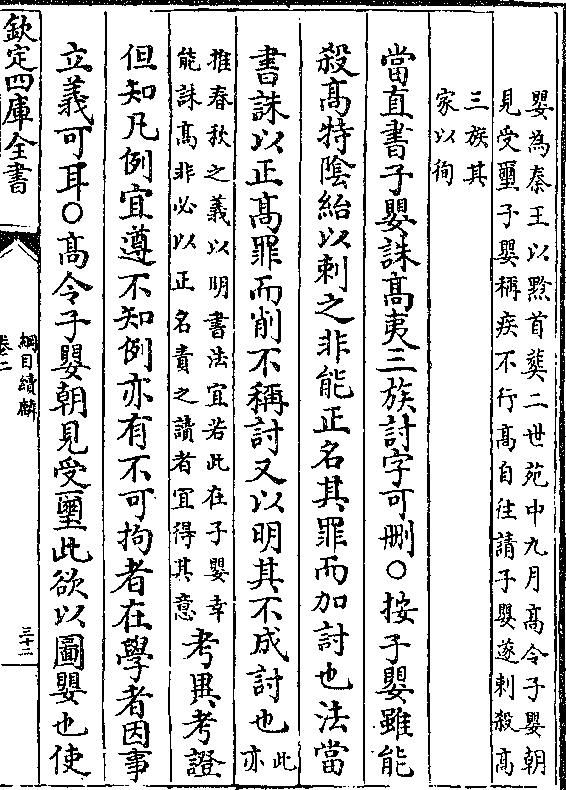 嬰為秦王以黔首葬二世苑中九月高令子嬰朝
見受璽子嬰稱疾不行高自往請子嬰遂刺殺高
三族其
家以徇
當直書子嬰誅高夷三族討字可刪○按子嬰雖能
殺高特陰紿以刺之非能正名其罪而加討也法當
書誅以正高罪而削不稱討又以明其不成討也此
亦
推春秋之義以明書法宜若此在子嬰幸
能誅高非必以正名責之讀者宜得其意考異考證
但知凡例宜遵不知例亦有不可拘者在學者因事
立義可耳○高令子嬰朝見受璽此欲以圖嬰也使
欽定四庫全書
綱目續麟
卷二
三十二